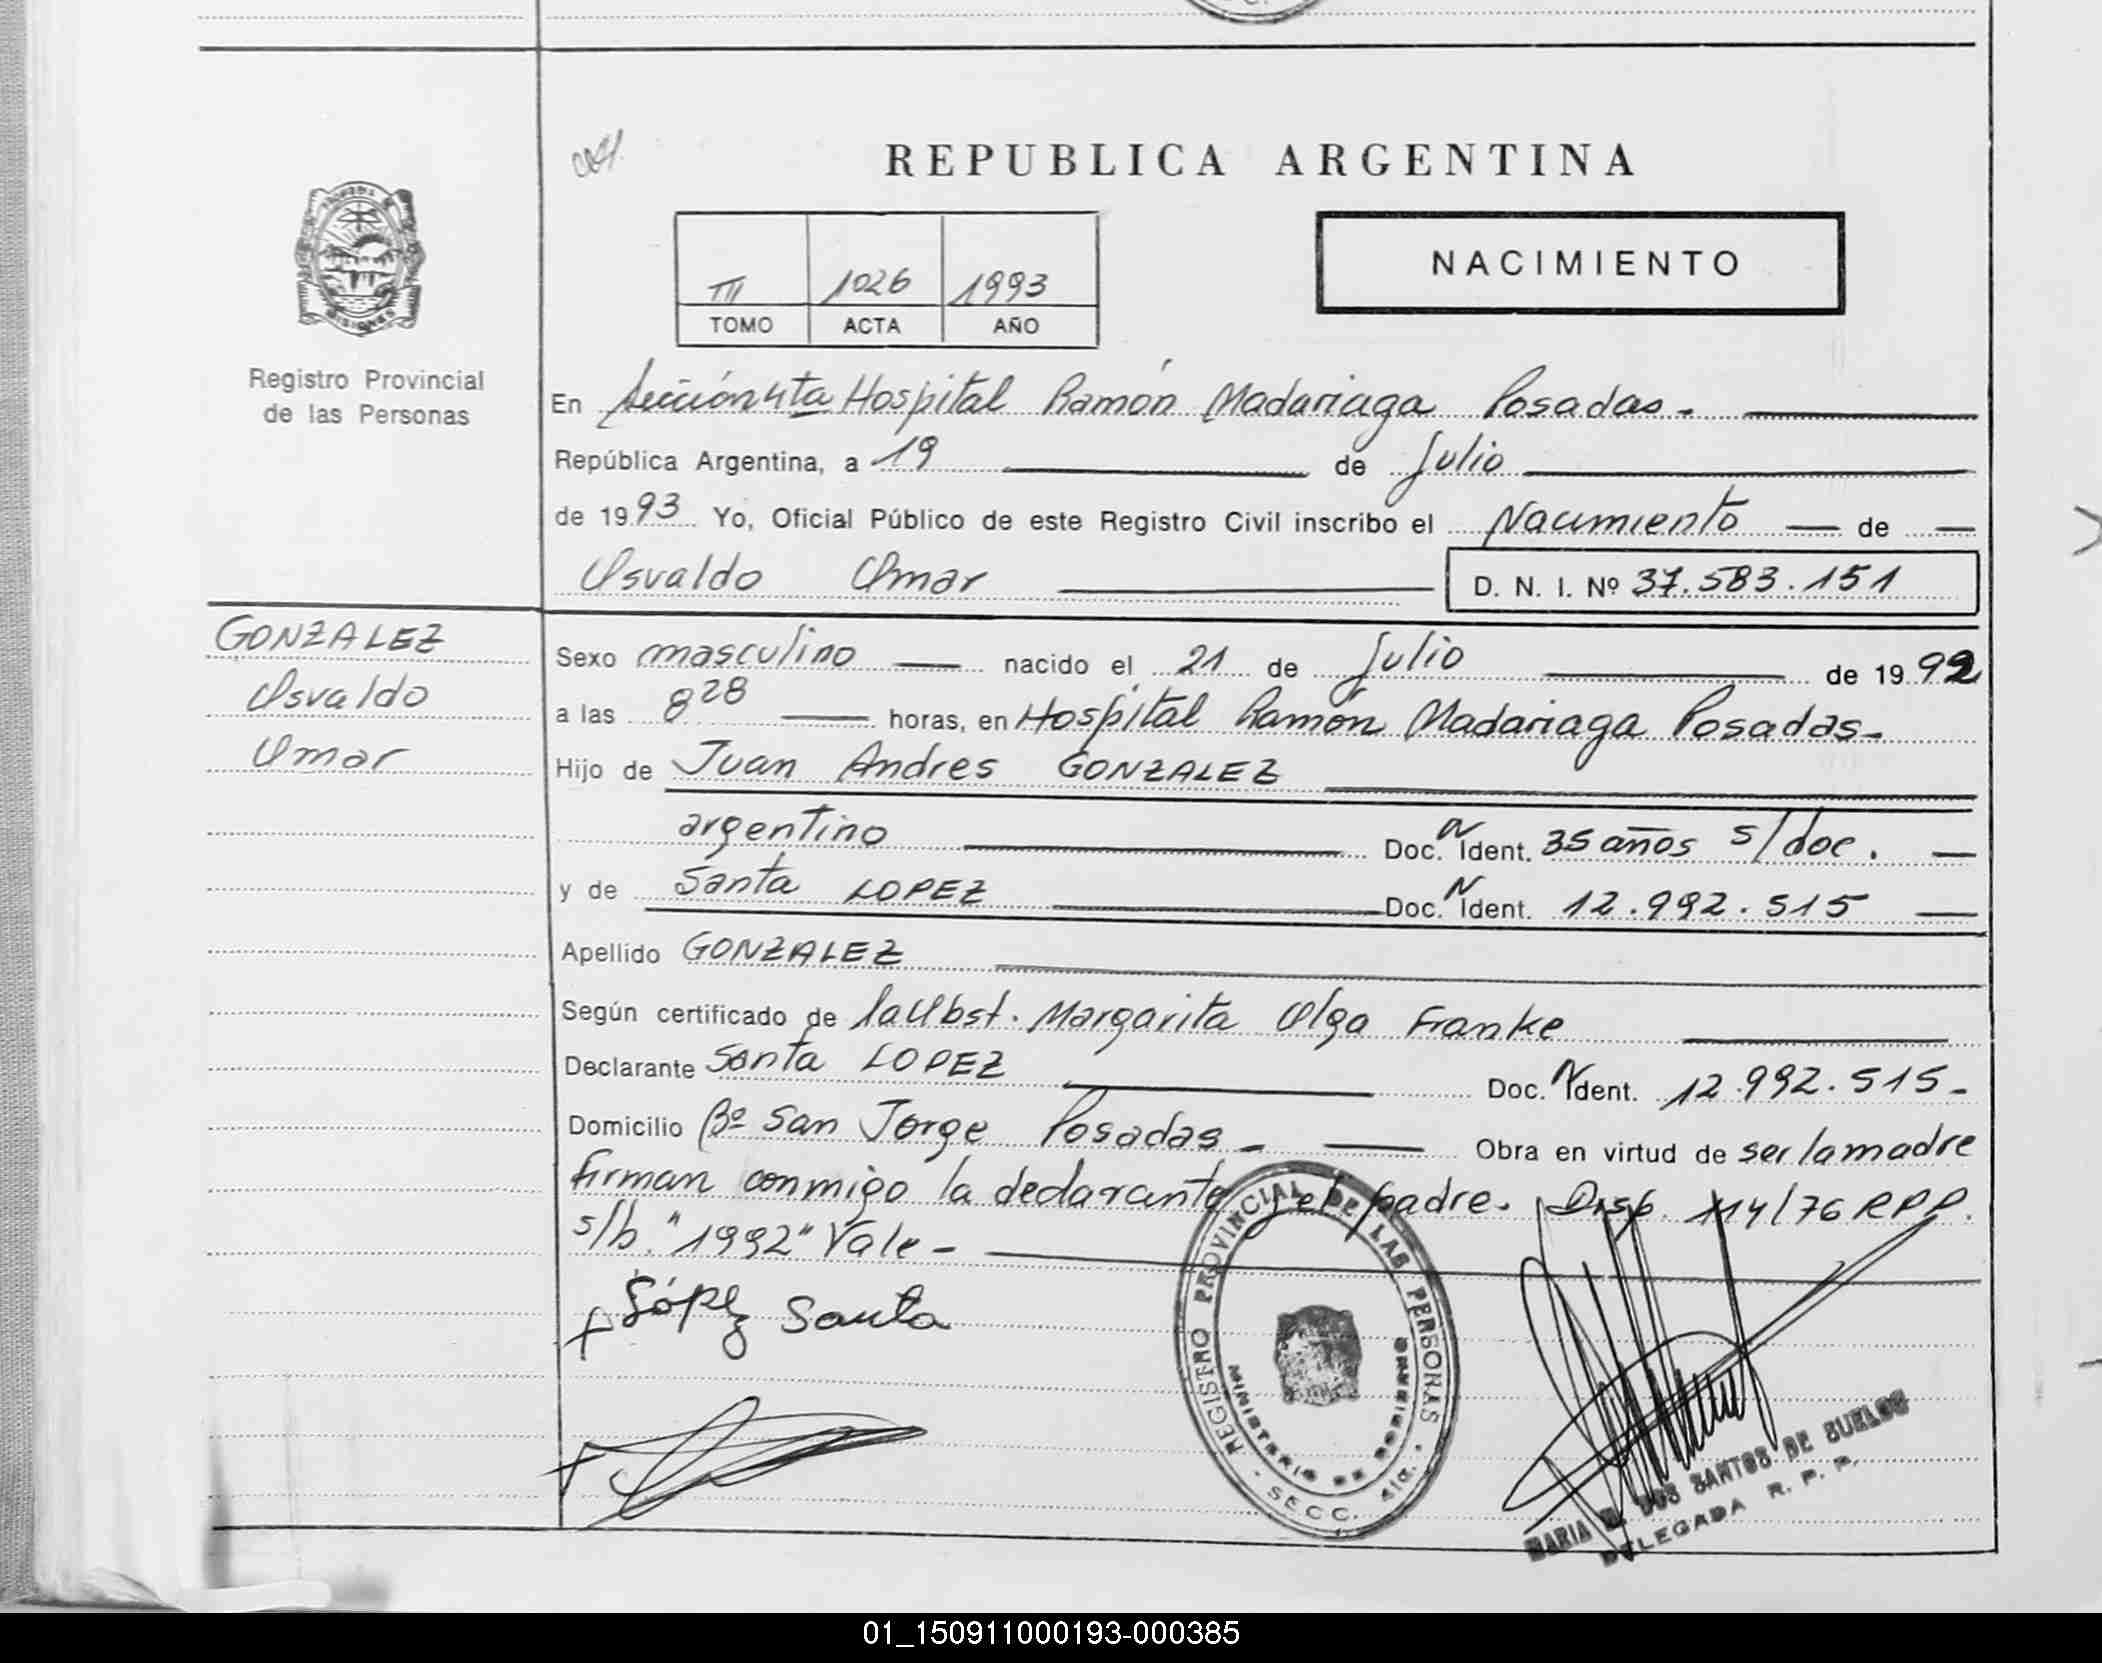 REPUBLICA ARGENTINA
NACIMIENTO
III 1026 1993
TOMO ACTA AÑO
Registro Provincial
de las Personas
En Sección 4ta Hospital Ramón Madariaga Posadas.
República Argentina, a 19 de Julio
de 1993 Yo, Oficial Público de este Registro Civil inscribo el Nacimiento de
Osvaldo Omar D. N. I. Nº 37.583.151
GONZALEZ
Osvaldo
Omar
Sexo masculino nacido el 21 de Julio de 1992
a las 8 28 horas, en Hospital Ramón Madariaga Posadas.
Hijo de Juan Andres GONZALEZ
argentino Doc. N Ident. 35 años s/doc.
y de Santa LOPEZ Doc. N Ident. 12.992.515
Apellido GONZALEZ
Según certificado de la Obst. Margarita Olga Franke
Declarante Santa LOPEZ Doc. N Ident. 12.992.515.
Domicilio Bº San Jorge Posadas Obra en virtud de ser la madre
firman conmigo la declarante y el padre. Disp. 114/76 RPP.
s/b. "1992" Vale
López Santa
REGISTRO PROVINCIAL DE LAS PERSONAS
MINISTERIO DE GOBIERNO
SECC. 4ta.
MARIA DOS SANTOS DE SUELOS
DELEGADA R. P. P.
01_150911000193-000385